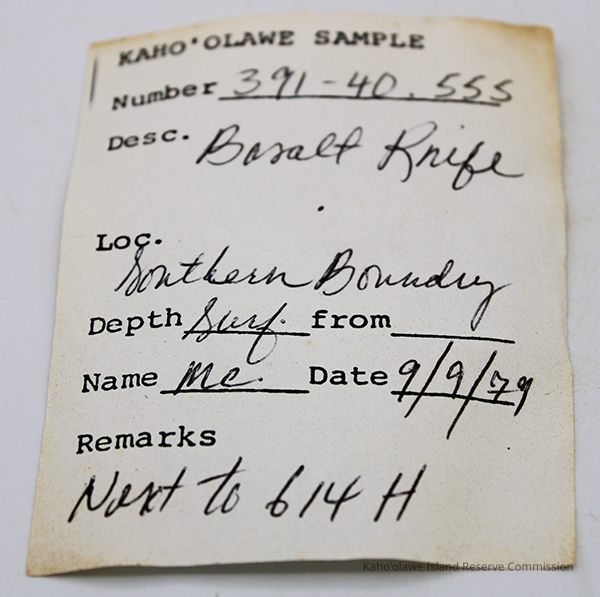 KAHO'OLAWE SAMPLE
Number 391-40.555
Desc. Basalt Knife
Loc.
Southern Boundry
Depth Surf. from
Name Mc. Date 9/9/79
Remarks
Next to 614 H
Kaho'olawe Island Reserve Commission